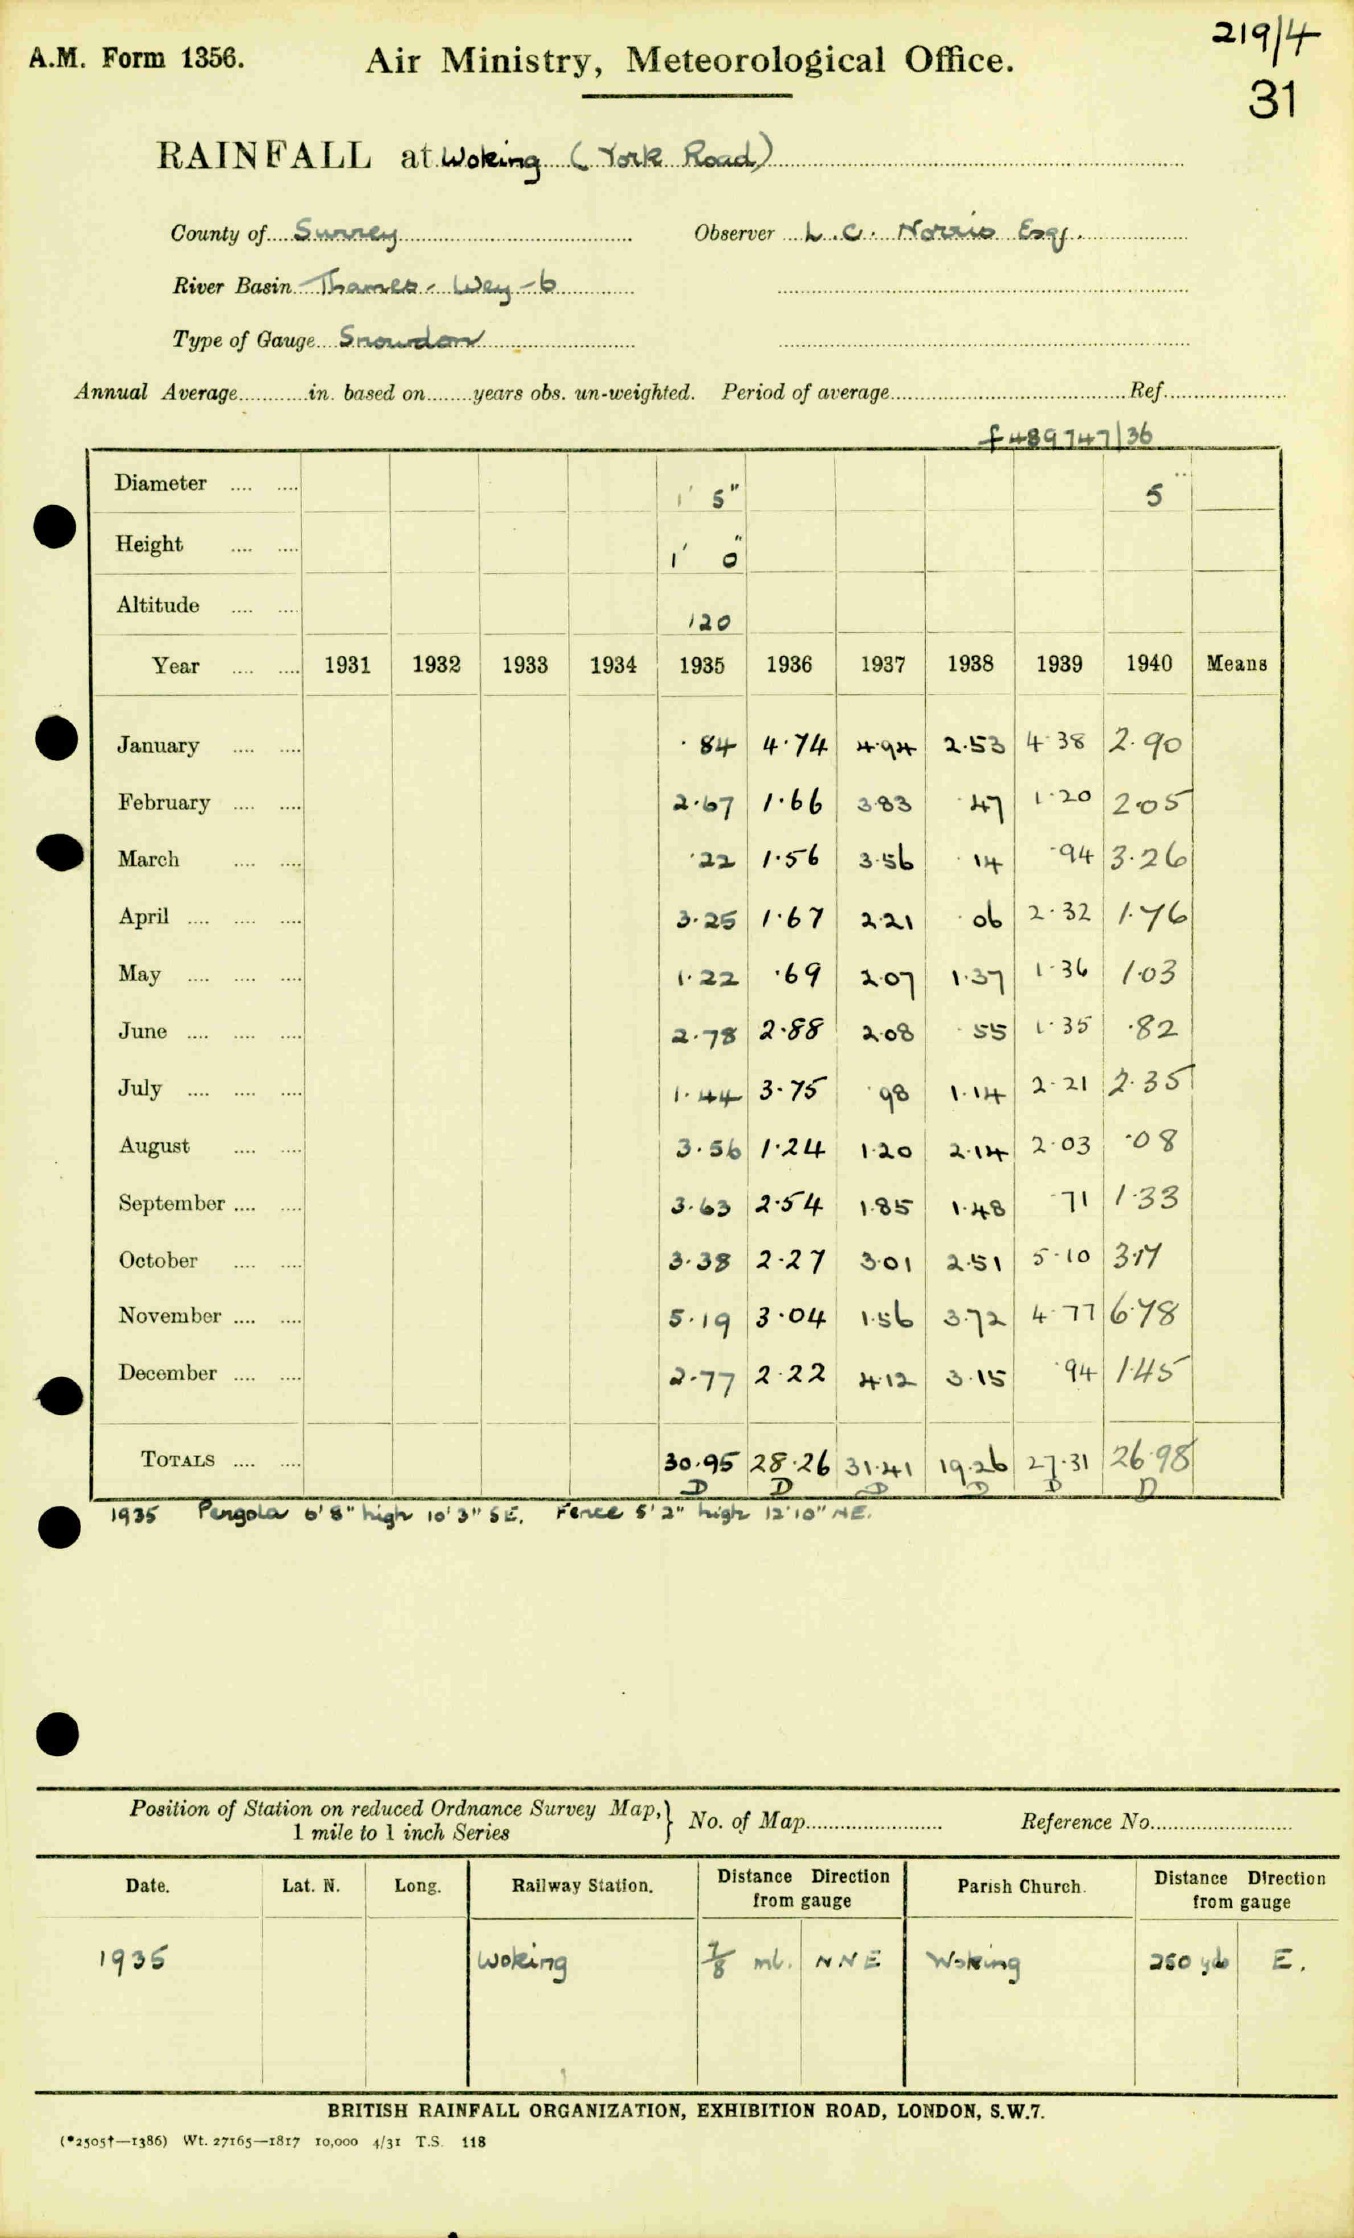 219/4
A.M. Form 1356. Air Ministry, Meteorological Office.
31
RAINFALL at Woking (York Road)
County of Surrey Observer L. C. Norris Esq.
River Basin Thames - Wey - 6
Type of Gauge Snowdon
Annual Average in. based on years obs. un-weighted. Period of average Ref.
f 489747/36
Diameter 5" 5"
Height 1' 0"
Altitude 120
Year 1931 1932 1933 1934 1935 1936 1937 1938 1939 1940 Means
January ·84 4·74 4·94 2·53 4·38 2·90
February 2·67 1·66 3·83 ·47 1·20 2·05
March ·22 1·56 3·56 ·14 ·94 3·26
April 3·25 1·67 2·21 ·06 2·32 1·76
May 1·22 ·69 2·07 1·37 1·36 1·03
June 2·78 2·88 2·08 ·55 1·35 ·82
July 1·44 3·75 ·98 1·14 2·21 2·35
August 3·56 1·24 1·20 2·14 2·03 ·08
September 3·63 2·54 1·85 1·48 ·71 1·33
October 3·38 2·27 3·01 2·51 5·10 3·17
November 5·19 3·04 1·56 3·72 4·77 6·78
December 2·77 2·22 4·12 3·15 ·94 1·45
TOTALS 30·95 28·26 31·41 19·26 27·31 26·98
D D D D D D
1935 Pergola 6'8" high 10'3" SE. Fence 5'2" high 12'10" NE.
Position of Station on reduced Ordnance Survey Map, } No. of Map Reference No.
1 mile to 1 inch Series
Date. Lat. N. Long. Railway Station. Distance Direction from gauge Parish Church. Distance Direction from gauge
1935 Woking 7/8 ml. NNE Woking 250 yds E.
BRITISH RAINFALL ORGANIZATION, EXHIBITION ROAD, LONDON, S.W.7.
(*2505†—1386) Wt. 27165—1817 10,000 4/31 T.S. 118